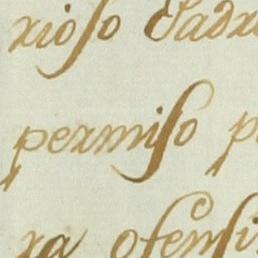 rioso Padr
permiso p
ra ofensi